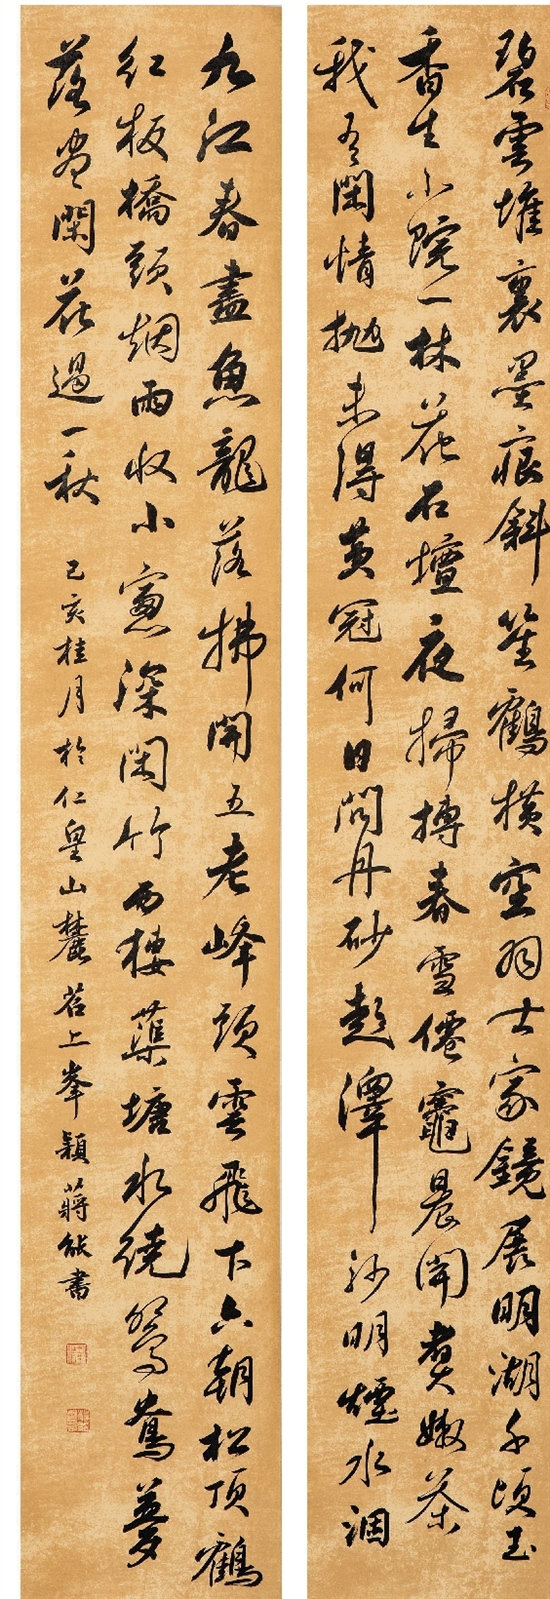 碧雲堆裏墨痕斜笙鶴橫空羽士家鏡展明湖千頃玉
香生小院一林花石壇夜掃摶春雪僊竈晨開煮嫩茶
我有閑情拋未得黃冠何日問丹砂彭澤沙明煙水涸
九江春盡魚龍落拂開五老峰頭雲飛下六朝松頂鶴
紅板橋頭烟雨收小窻深閑竹西樓蕖塘水繞鴛鴦夢
落盡閑花過一秋
己亥桂月於仁皇山麓苕上峯穎蔣能書